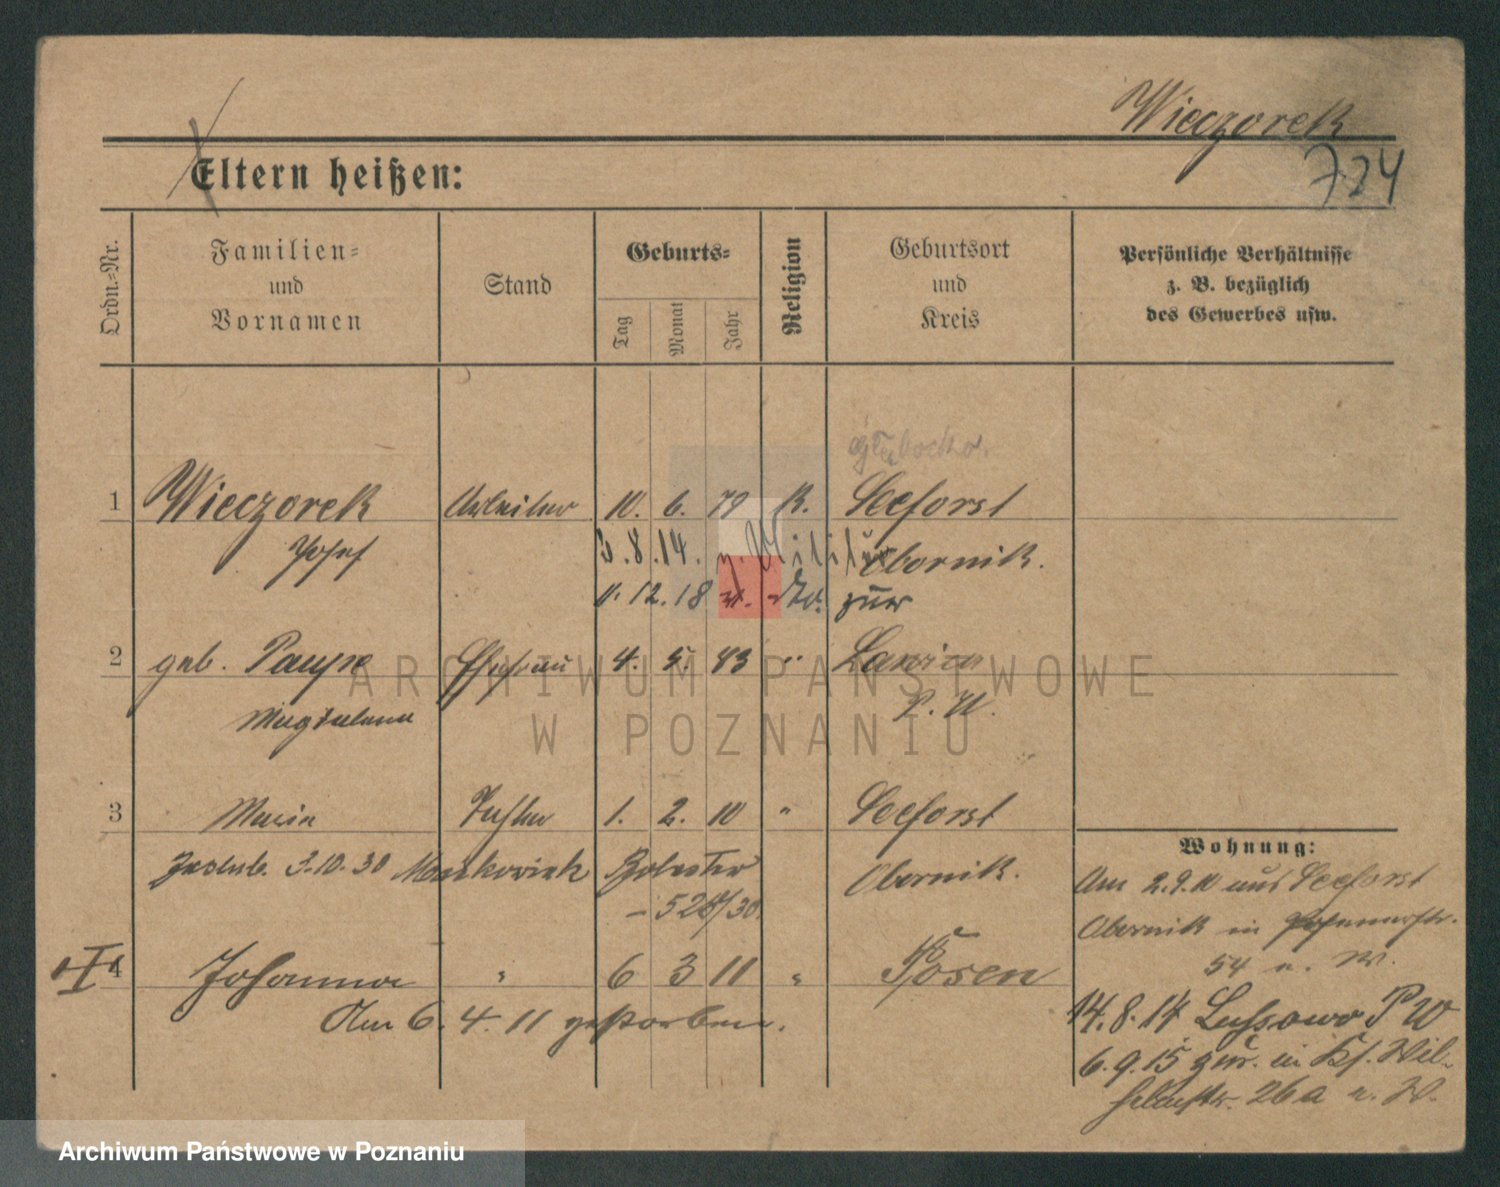 Wieczorek
724
Eltern heißen:
Ordn.-Nr.
Familien-
und
Vornamen
Stand
Geburts-
Tag
Monat
Jahr
Religion
Geburtsort
und
Kreis
Persönliche Verhältnisse
z. B. bezüglich
des Gewerbes usw.
1 Wieczorek Arbeiter 10. 6. 79 K. Seeforst
Josef
Obornik.
8.14. z. Militär
12.18 zur
2 geb. Ehefrau 4. 5. 83 " Lawica
Magdalena P. W.
3 Maria Tochter 1. 2. 10 " Seeforst
3.10.30 Obornik.
4 Johanna " 6 3 11 " Posen
Am 6. 4. 11 gestorben.
Wohnung:
Am 2.9.10 aus Seeforst
Obornik in
54 n. W.
14.8.14 Lussowo P W
6.9.15 zur. in Wil-
helmstr. 26a n. W.
ARCHIWUM PAŃSTWOWE
W POZNANIU
Archiwum Państwowe w Poznaniu